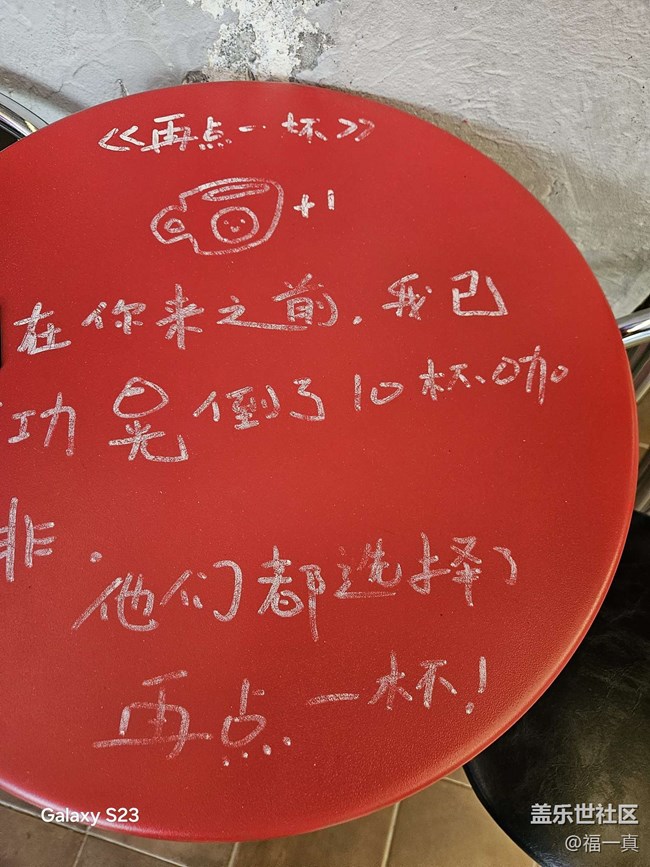 《再点一杯》
+1
在你来之前，我已
功晃倒了10杯咖
非。
他们都选择了
再点一杯！
Galaxy S23
盖乐世社区
@福一真